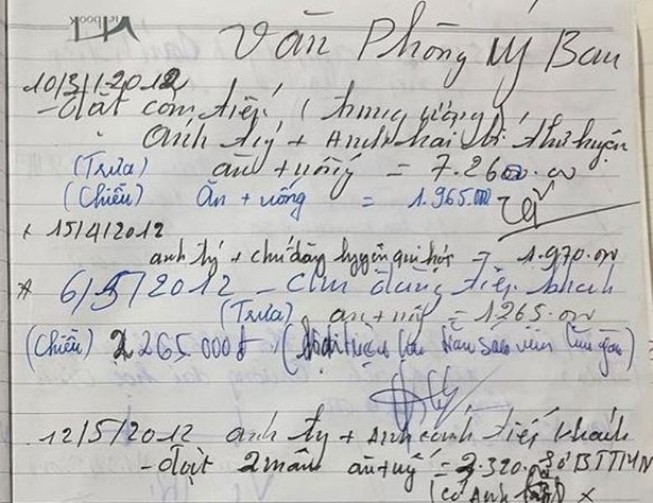 Văn Phòng Uỷ Ban
10/3/2012
- đặt cơm tiếp (trung ương)
anh tý + Anh hai bí thư huyện
(Trưa) ăn + uống = 7.260.00
(Chiều) Ăn + uống = 1.965.000
+ 15/4/2012
anh tý + chú dũng huyện = 1.970.00
* 6/5/2012 - Chú dũng tiếp khách
(Trưa) ăn + uống = 1265.00
(Chiều) 2265.000đ
12/5/2012 anh tý + Anh cảnh tiếp khách
- đặt 2 mâm ăn + uố = 2.320.00 sở BTTMN
(có Anh